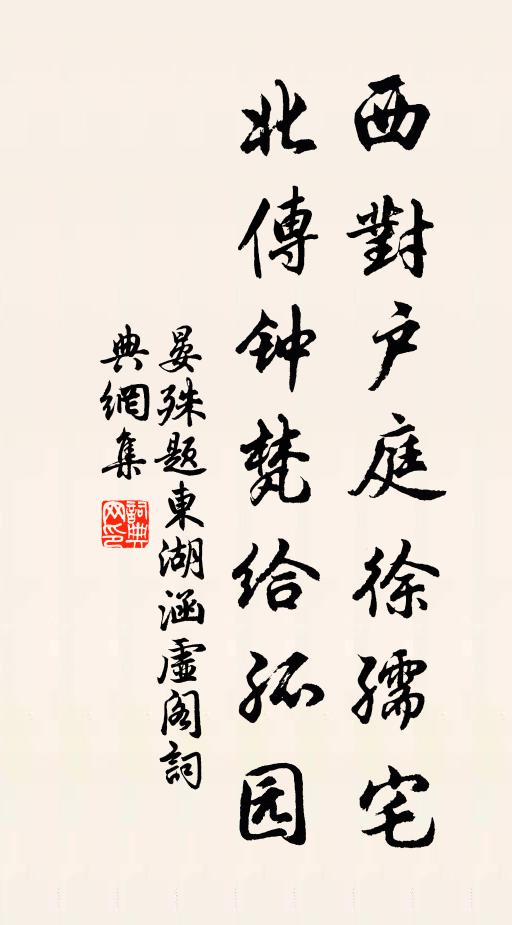 西對户庭徐孺宅
北傳钟梵给孤园
晏殊题東湖涵虛阁詞
典網集
詞典网印